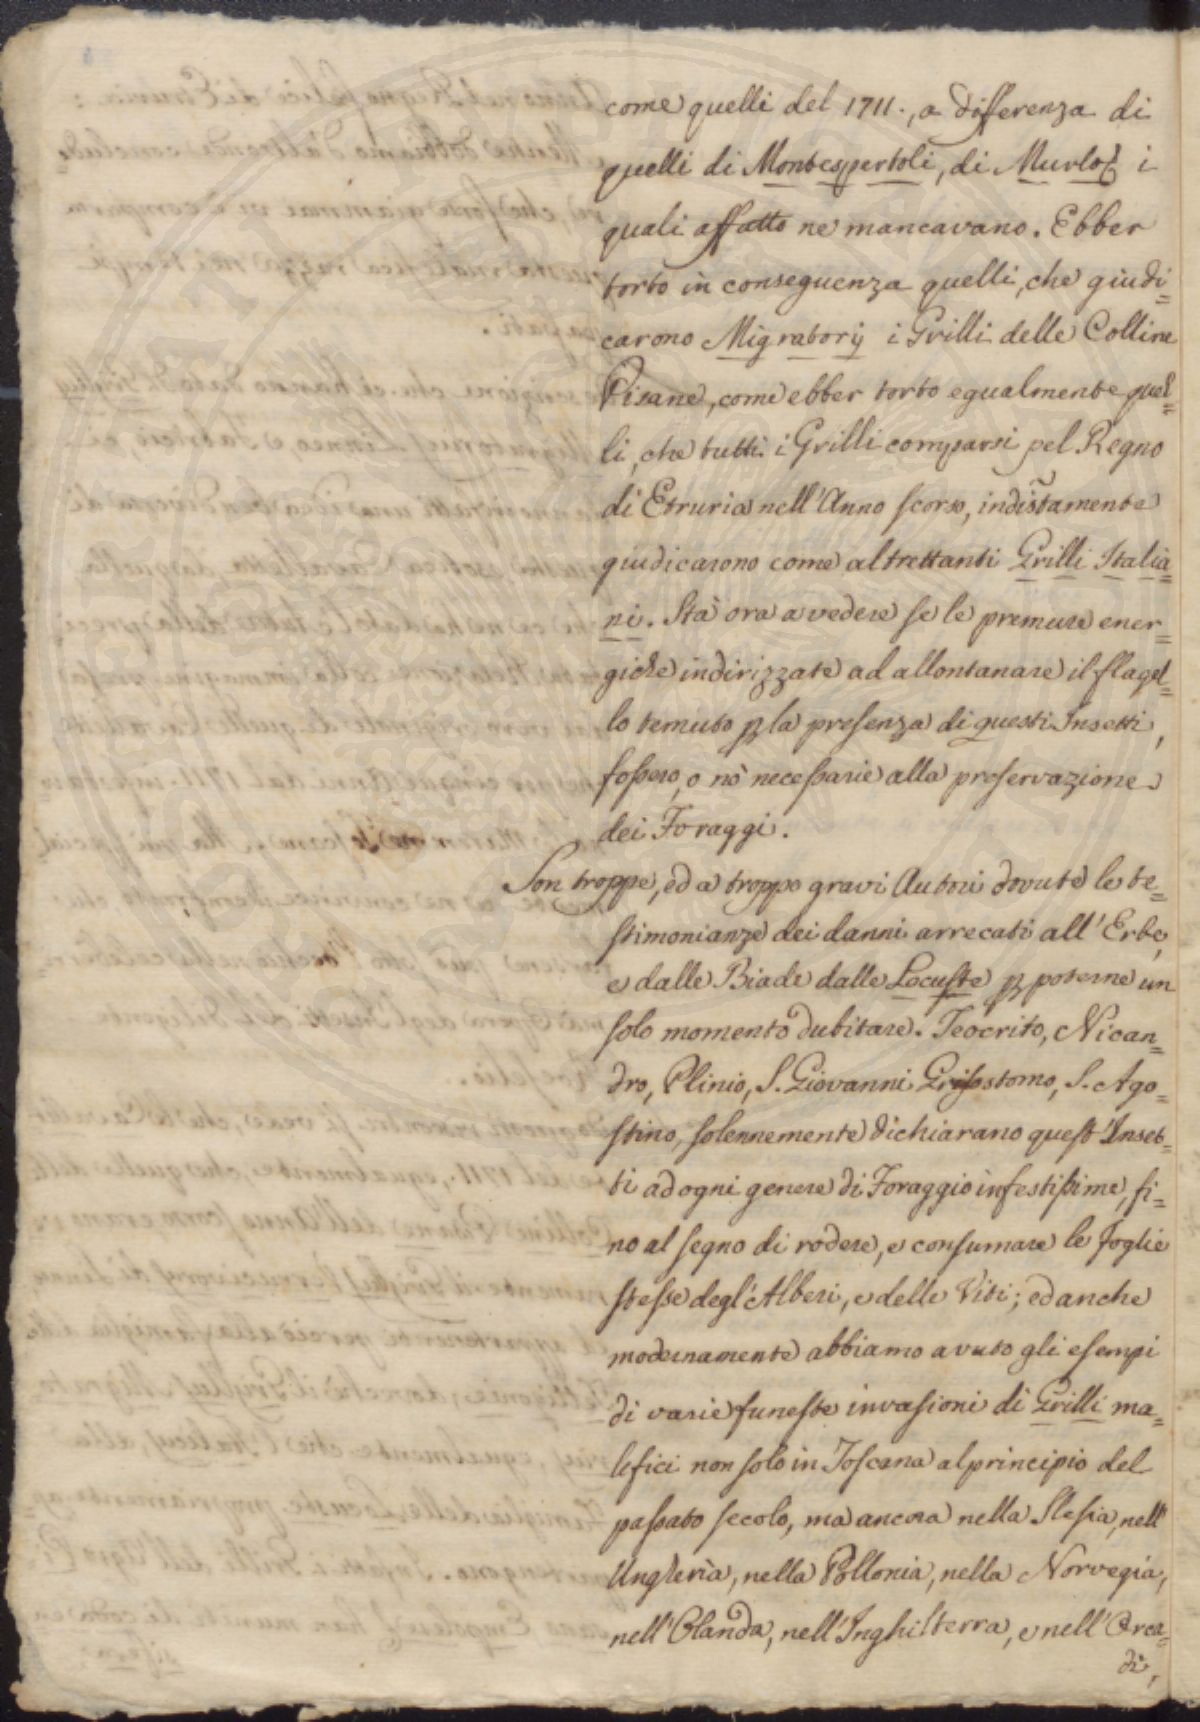 come quelli del 1711., a differenza di
quelli di Montespertoli, di Murlo i
quali affatto ne mancavano. Ebber
torto in conseguenza quelli, che giudi=
carono Migratorij i Grilli delle Colline
Pisane, come ebber torto egualmente quel=
li, che tutti i Grilli comparsi pel Regno
di Etruria nell'Anno scorso, indistamente
giudicarono come altrettanti Grilli Italia=
ni. Stà ora a vedere se le premure ener=
giche indirizzate ad allontanare il flagel=
lo temuto p la presenza di questi Insetti,
fossero, o nò necessarie alla preservazione
dei Foraggi.
Son troppe, ed a troppo gravi Autori dovute le te=
stimonianze dei danni arrecati all'Erbe,
e dalle Biade dalle Locuste p poterne un
solo momento dubitare. Teocrito, Nican=
dro, Plinio, S. Giovanni Grisostomo, S. Ago=
stino, solennemente dichiarano quest'Inset=
ti ad ogni genere di Foraggio infestissime, fi=
no al segno di rodere, e consumare le foglie
stesse degl'Alberi, e delle Viti; ed anche
modernamente abbiamo avuto gli esempi
di varie funeste invasioni di Grilli ma=
lefici non solo in Toscana al principio del
passato secolo, ma ancora nella Slesia, nell'
Ungheria, nella Pollonia, nella Norvegia,
nell'Olanda, nell'Inghilterra, e nell'Orca=
di,